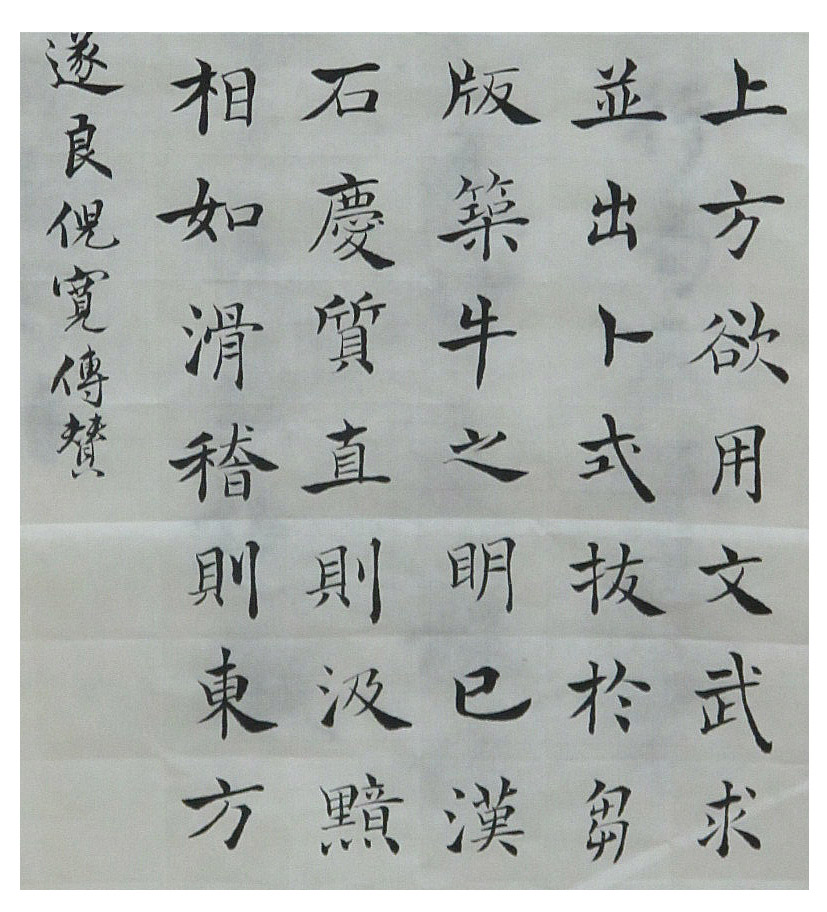 上方欲用文武求
並出卜式拔於芻
版築牛之明已漢
石慶質直則汲黯
相如滑稽則東方
遂良倪寬傳贊